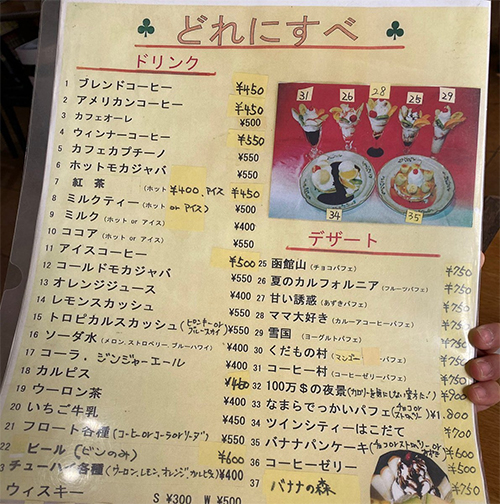 ♣ どれにすべ ♣
ドリンク
1 ブレンドコーヒー ¥450
2 アメリカンコーヒー ¥450
3 カフェオーレ ¥500
4 ウィンナーコーヒー ¥550
5 カフェカプチーノ ¥550
6 ホットモカジャバ ¥550
7 紅 茶 (ホット ¥400. アイス ¥450
8 ミルクティー (ホット or アイス) ¥500
9 ミルク (ホット or アイス) ¥400
10 ココア (ホット or アイス) ¥550
11 アイスコーヒー ¥500
12 コールドモカジャバ ¥550
13 オレンジジュース ¥400
14 レモンスカッシュ ¥550
15 トロピカルスカッシュ ¥550
16 ソーダ水 (メロン, ストロベリー, ブルーハワイ) ¥400
17 コーラ.ジンジャーエール ¥400
18 カルピス
19 ウーロン茶 ¥400
20 いちご牛乳 ¥450
21 フロート各種 (コーヒーorコーラorソーダ) ¥550
22 ビール (ビンのみ) ¥600
3 チューハイ各種 ¥400
ウィスキー S ¥300 W ¥500
31 26 28 25 29
34 35
デザート
25 函館山 (チョコパフェ) ¥750
26 夏のカルフォルニア (フルーツパフェ)
27 甘い誘惑 (あずきパフェ) ¥750
28 ママ大好き (カルーアコーヒーパフェ) ¥750
29 雪国 (ヨーグルトパフェ) ¥750
30 くだもの村 (マンゴー パフェ) ¥750
31 コーヒー村 (コーヒーゼリーパフェ) ¥750
32 100万$の夜景 ¥900
33 なまらでっかいパフェ (チョコor ストロベリー) ¥1.800
34 ツインシティーはこだて ¥700
35 バナナパンケーキ ¥600
36 コーヒーゼリー ¥500
37 バナナの森